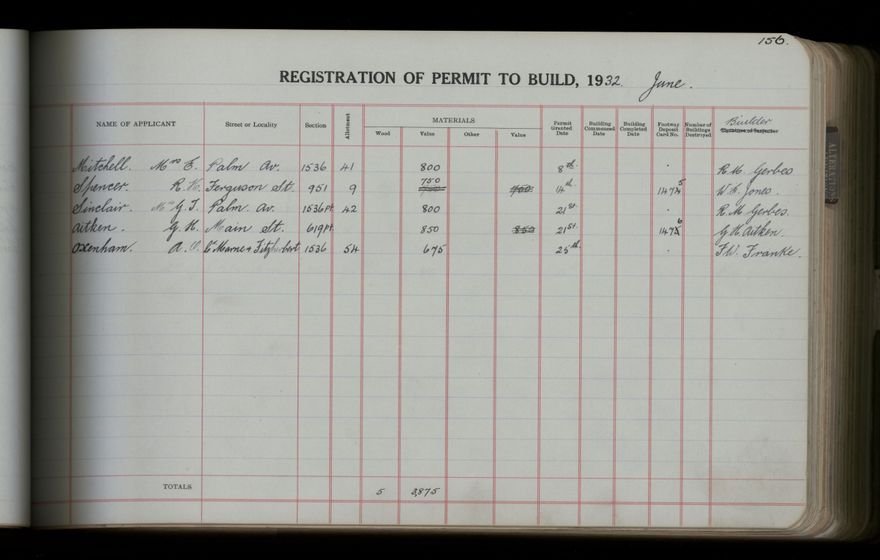 156.
REGISTRATION OF PERMIT TO BUILD, 1932. June.
NAME OF APPLICANT Street or Locality Section Allotment MATERIALS Wood Value Other Value Permit Granted Date Building Commenced Date Building Completed Date Footway Deposit Card No. Number of Buildings Destroyed Builder
Mitchell. Mrs E. Palm Av. 1536 41 800 8th R. M. Gerbes
Spencer. R. Ferguson St. 951 9 750 14th 1475 W. Jones.
Sinclair. Mrs G. J. Palm. Av. 1536pt 42 800 21st R. M Gerbes.
Aitken. G. H. Main St. 619pt 850 850 21st 1476 G. H. Aitken.
Oxenham. A. Cr Marne & Fitzherbert 1536 54 675 25th F. W. Franke.
TOTALS 5 3,875
ALTERATION